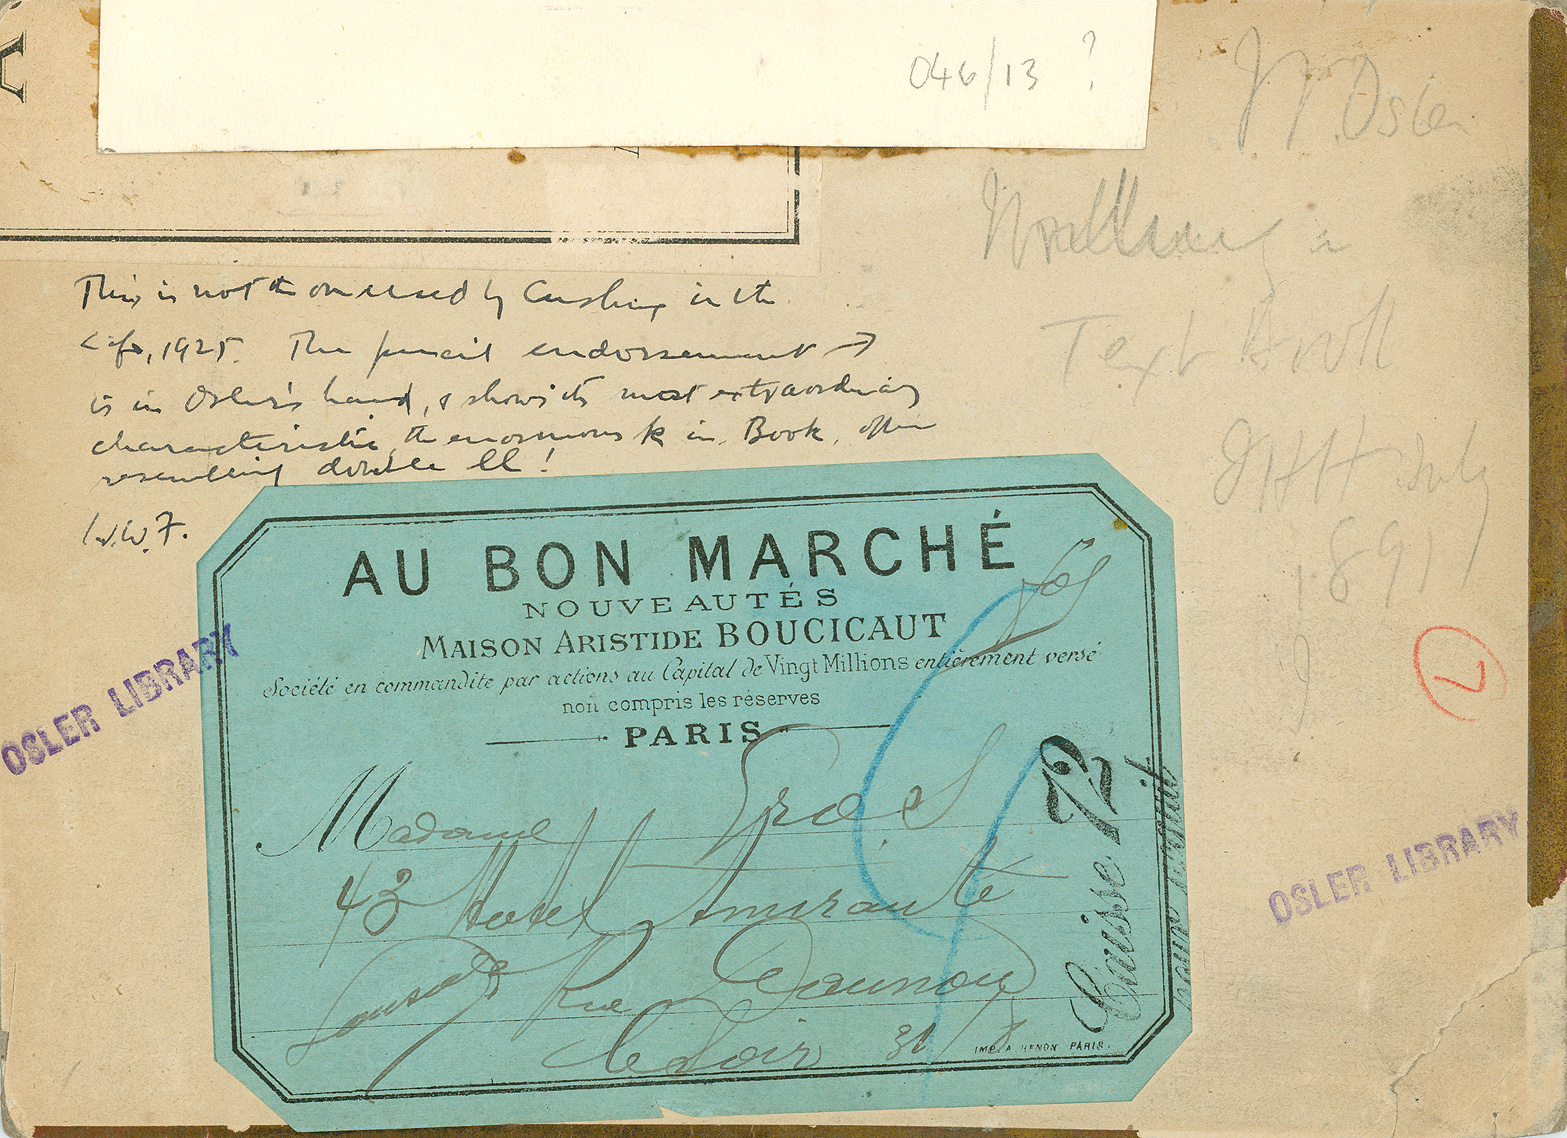 A
046/13 ?
W. Osler
Text Book
JHH July
1891
This is not the one used by Cushing in the
Life, 1925. The pencil endorsement →
is in Osler's hand, & shows its most extraordinary
characteristic, the enormous k in Book, often
resembling double ll!
W.W.F.
OSLER LIBRARY
AU BON MARCHÉ
NOUVEAUTÉS
MAISON ARISTIDE BOUCICAUT
Société en commandite par actions au Capital de Vingt Millions entièrement versé
non compris les réserves
PARIS
Madame
43 Hotel
Rue Daunou
le Soir 31
IMP. A. HENON PARIS.
Caisse 72
2
OSLER LIBRARY